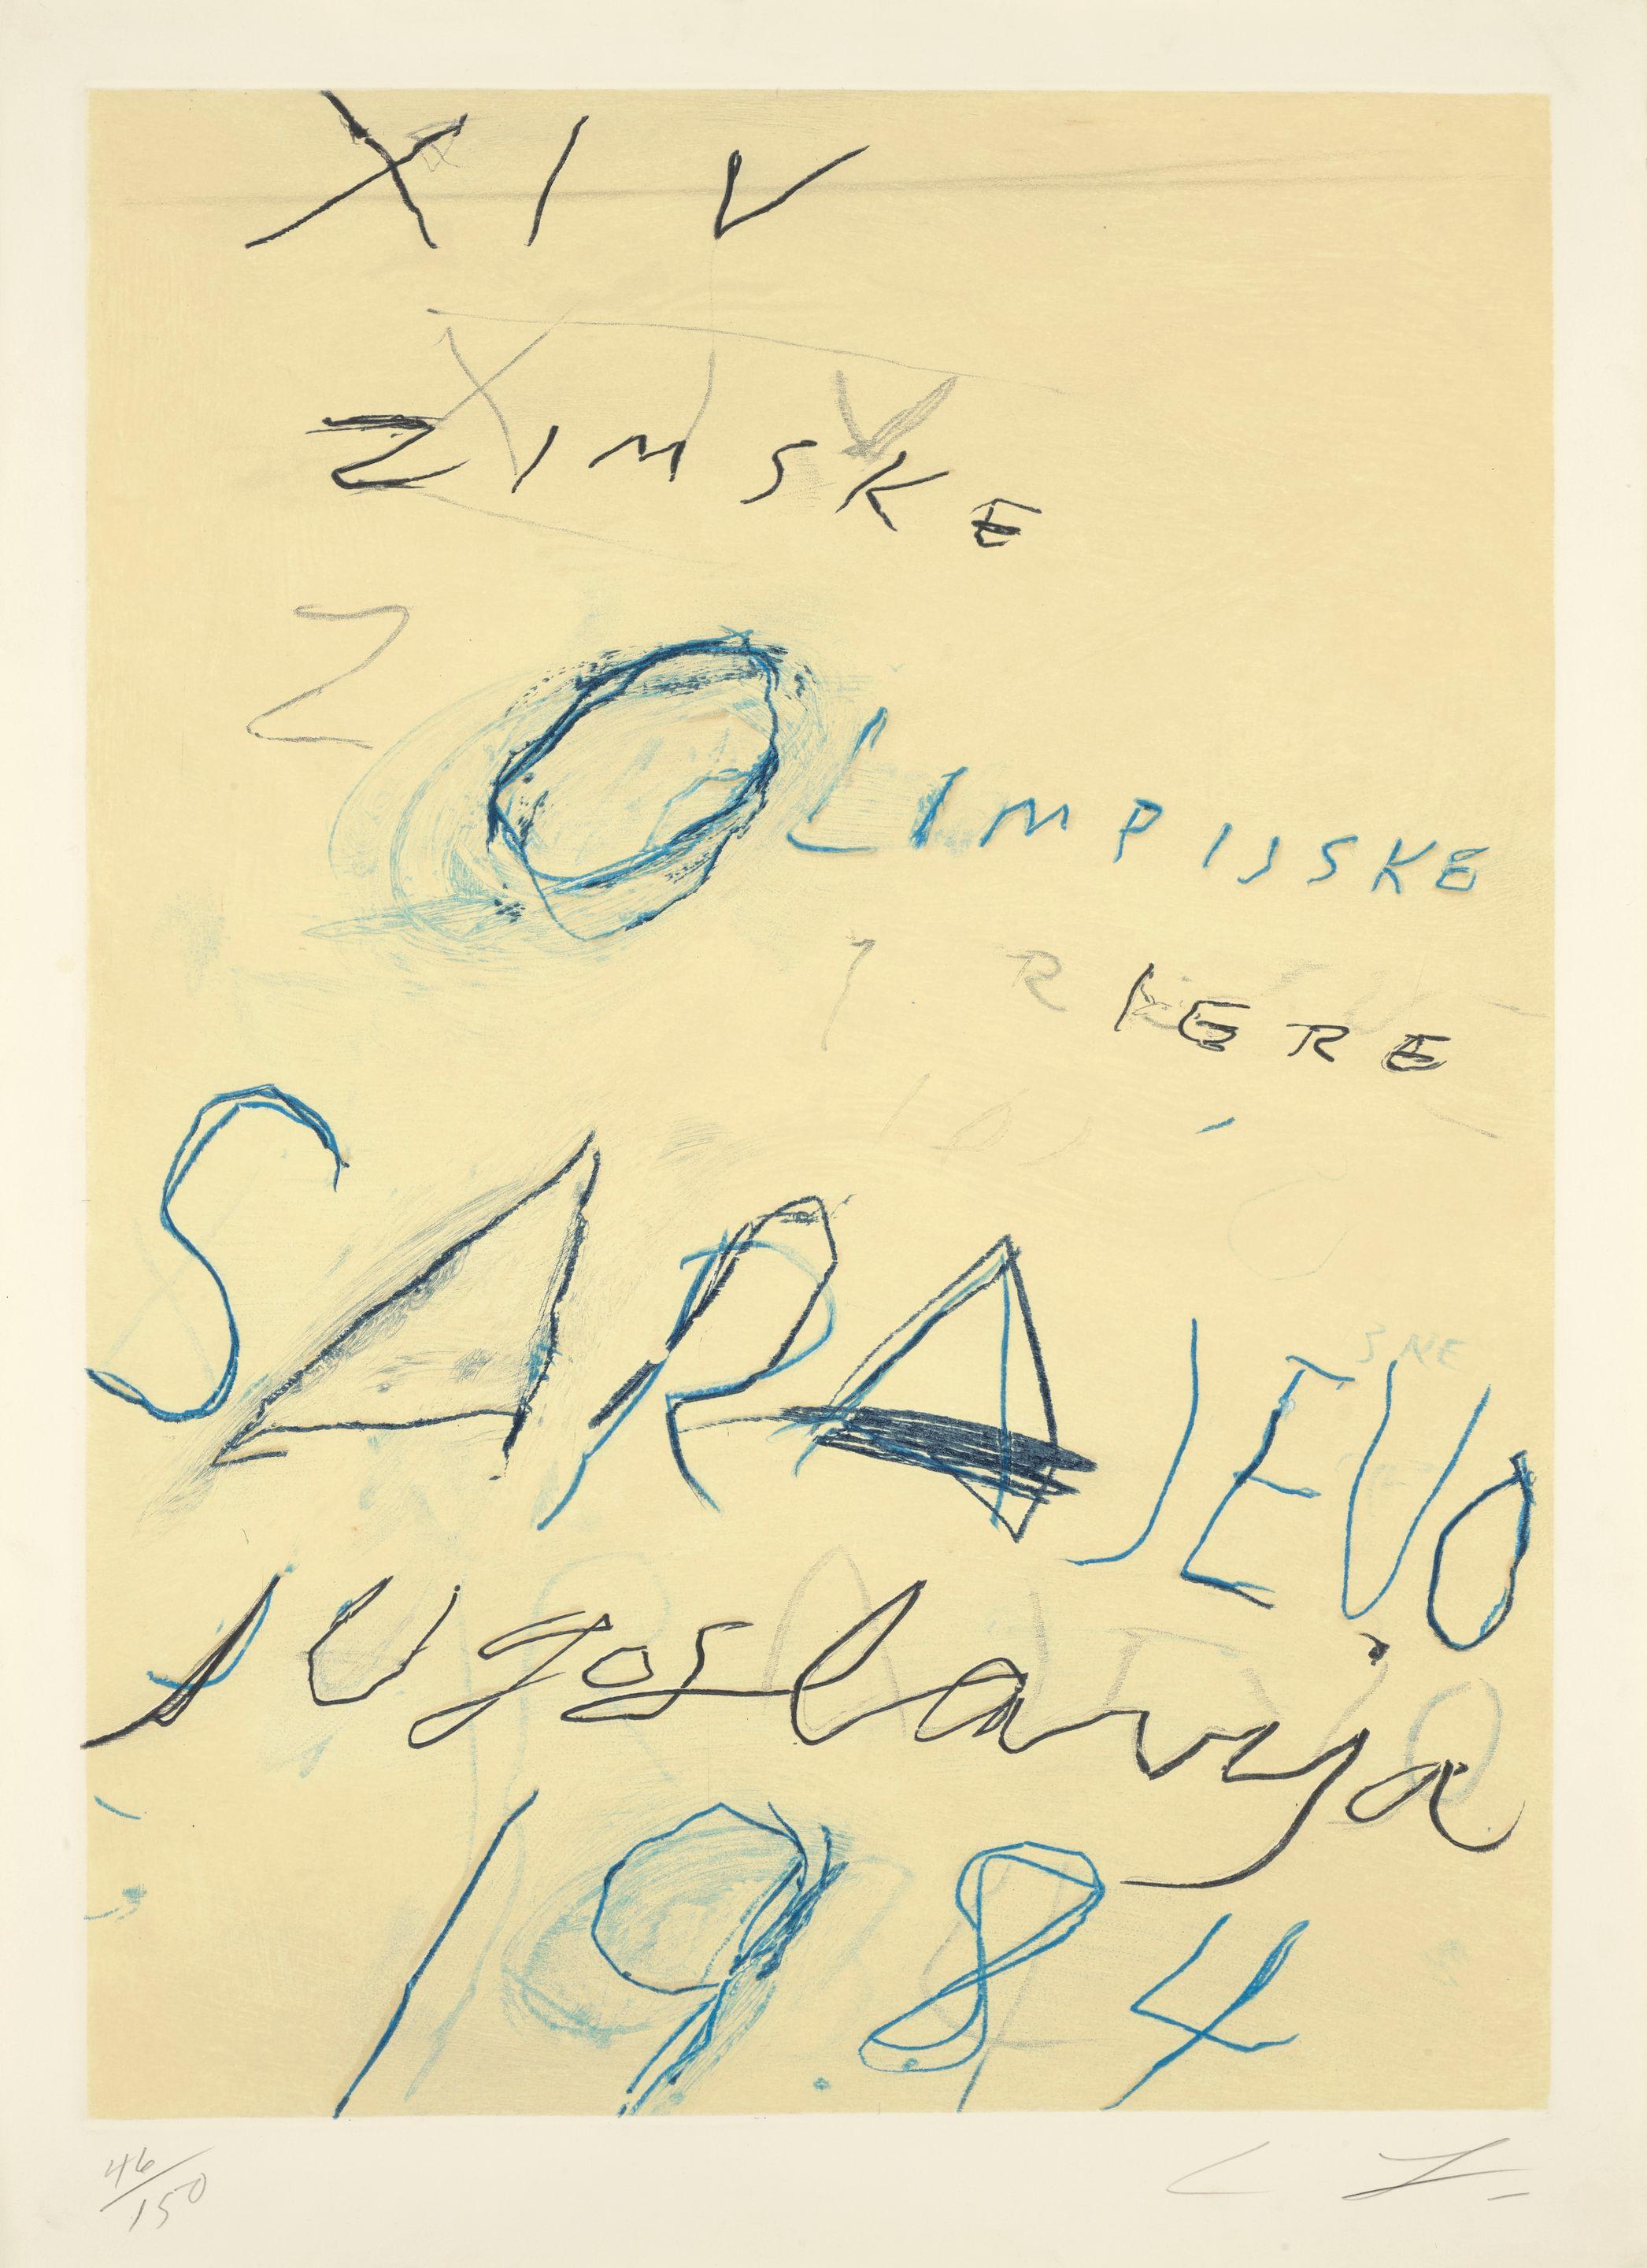 XIV
ZIMSKE
Z
OLIMPIJSKE
IGRE
SARAJEVO
Jugoslavija
1984
46/150